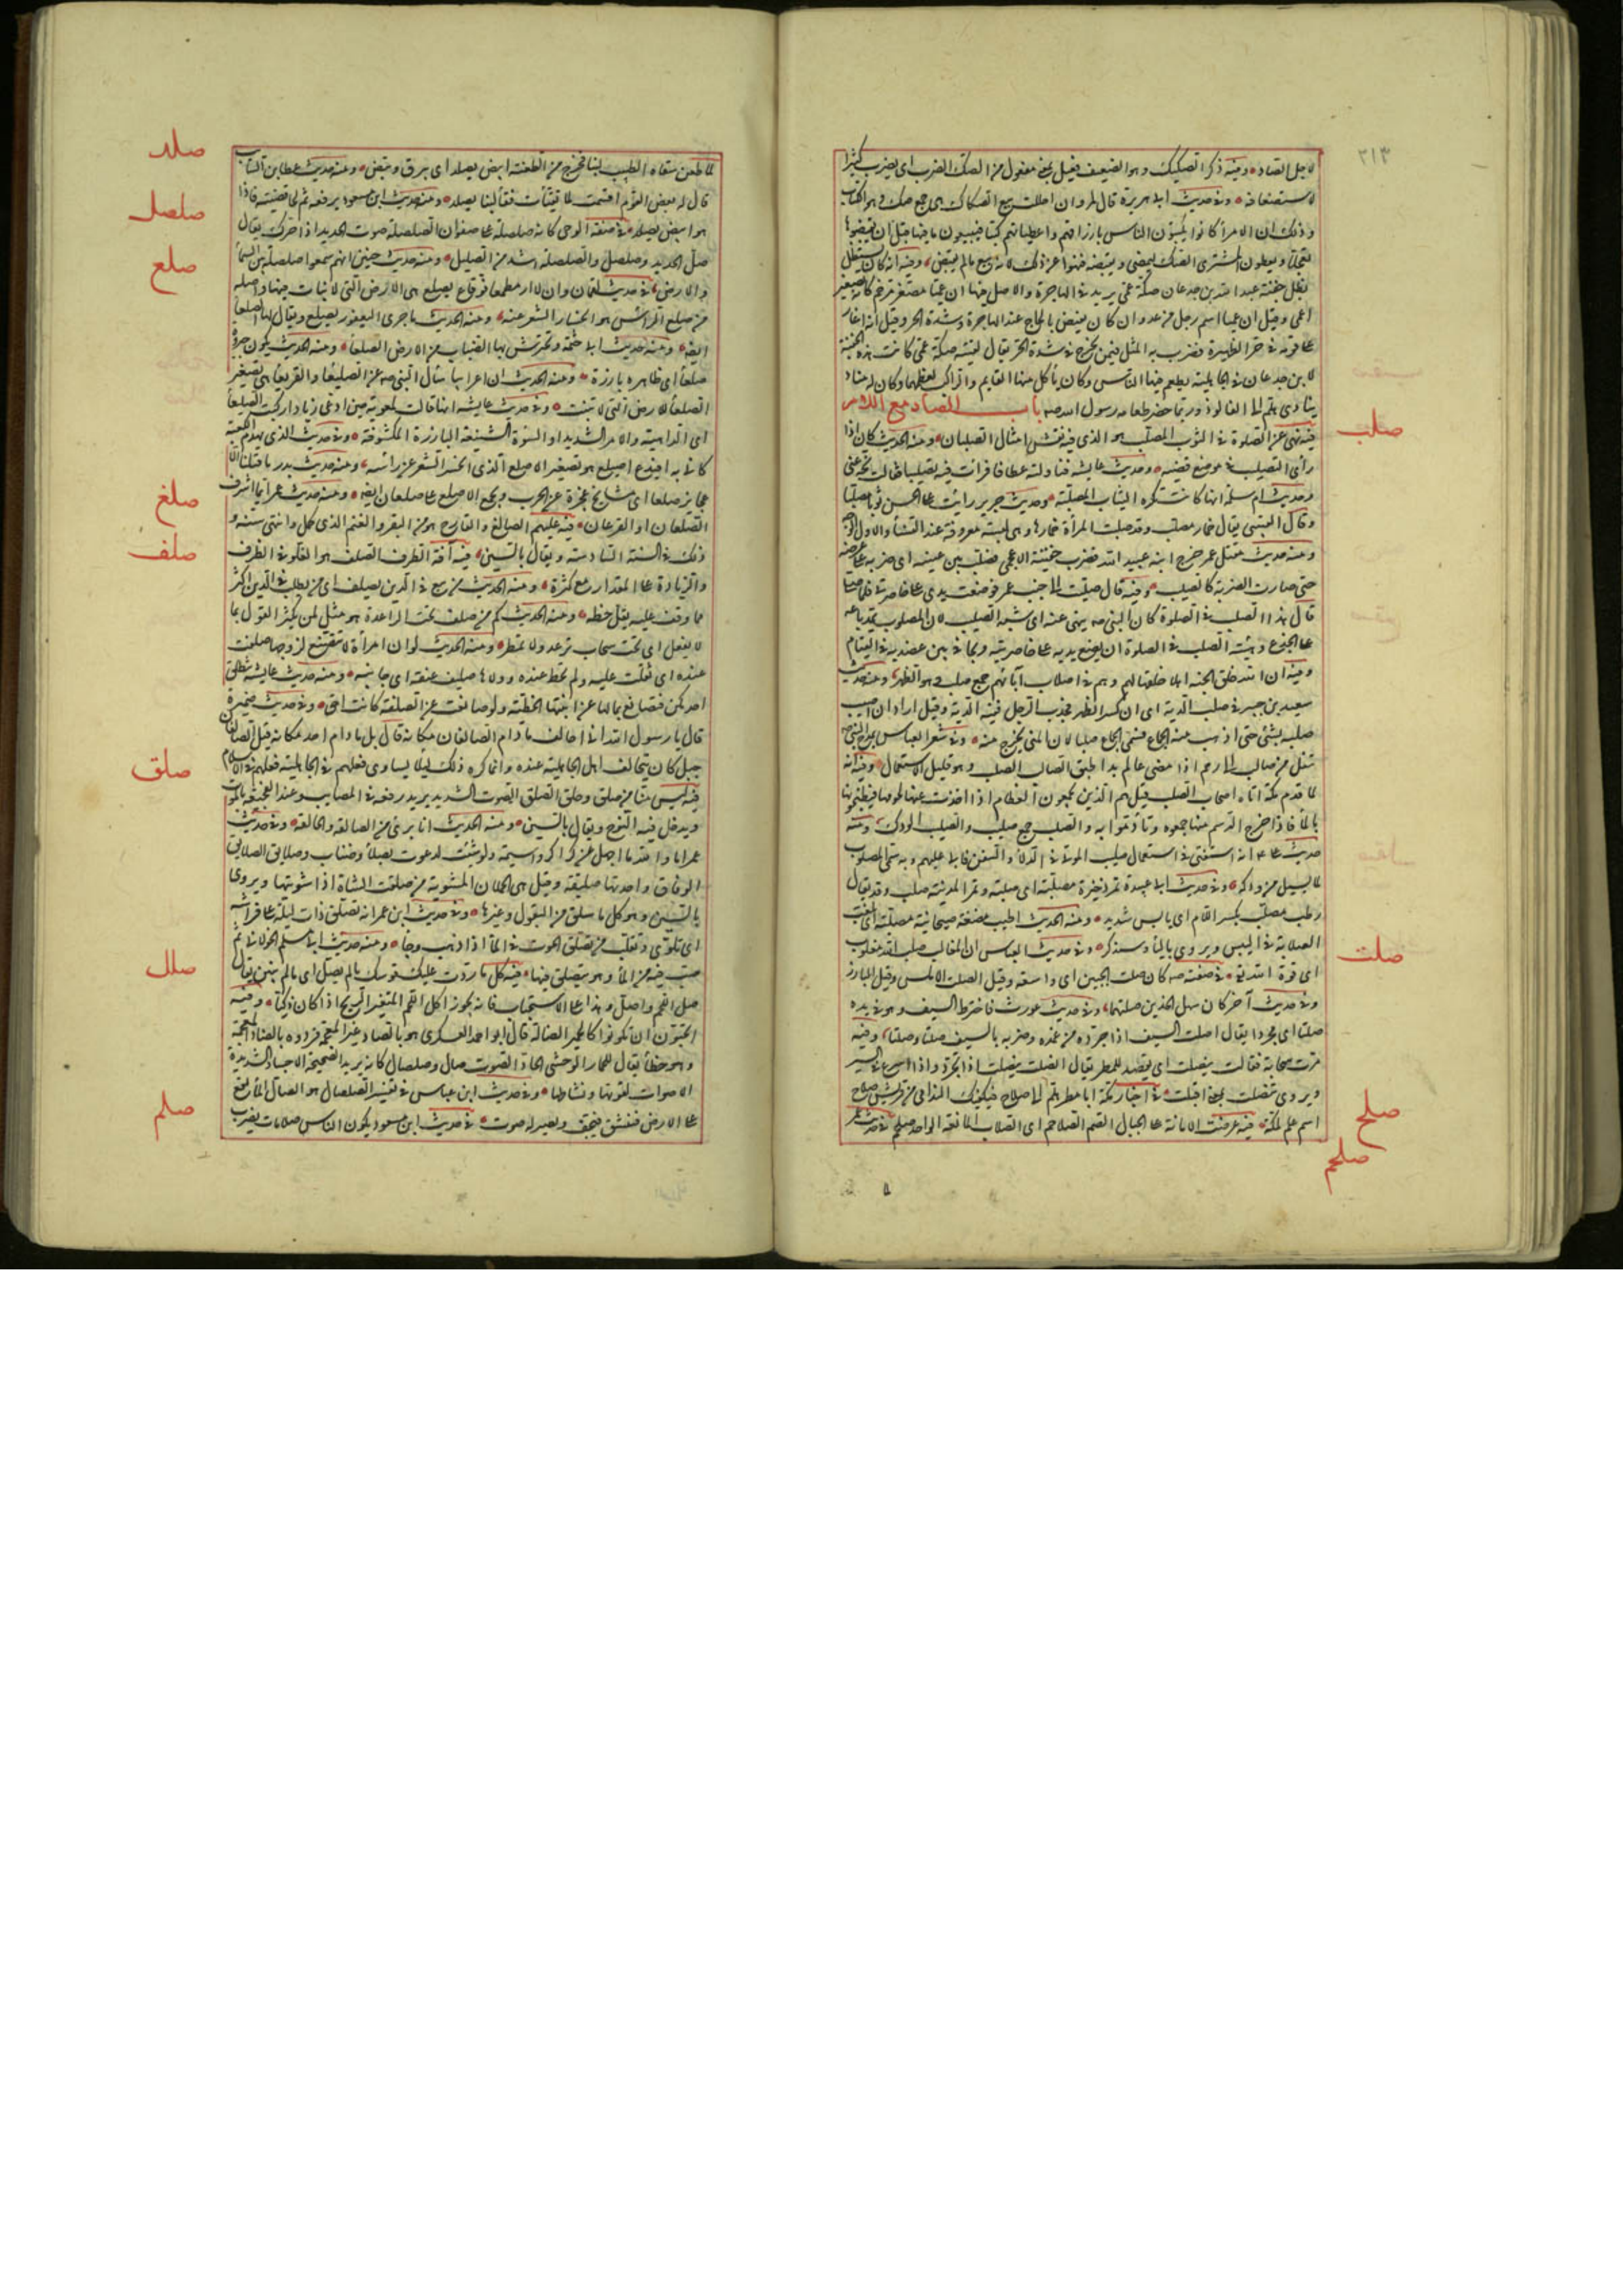 ٢١٣
لاجل الصاد ومنه ذكر الصكيك وهو الضعيف فعيل بمعنى مفعول من الصك الضرب اى يضرب كثيرا
لاستضعافه وفى حديث ابى هريرة قال لمروان احللت بيع الصكاك هى جمع صك وهو الكتاب
وذلك ان الامراء كانوا يكتبون للناس بارزاقهم واعطياتهم كتبا فيبيعون ما فيها قبل ان يقبضوها
تعجلا ويعطون المشترى الصك ليمضى ويقبضه فنهوا عن ذلك لانه بيع ما لم يقبض وفيه انه كان يستظل
بظل جفنة عبد الله بن جدعان صكة عمى يريد فى الهاجرة والاصل فيها ان عميا مصغر مرخم كانه تصغير
اعمى وقيل ان عميا اسم رجل من عدوان كان يفيض بالحاج عند الهاجرة وشدة الحر وقيل انه اغار
على قومه فى حر الظهيرة فضرب به المثل فيمن يخرج فى شدة الحر يقال لقيته صكة عمى وكانت هذه الجفنة
لابن جدعان فى الجاهلية يطعم فيها الناس وكان يأكل منها القايم والراكب لعظمها وكان له مناد
ينادى هلم الى الفالوذ وربما حضر طعامه رسول الله صه باب الصاد مع اللام
صلب
فيه نهى عن الصلوة فى الثوب المصلب هو الذى فيه نقش امثال الصلبان ومنه الحديث كان اذا
رأى التصليب فى موضع قضبه وحديث عايشه فناولته عطافا فرأت فيه تصليبا فقالت نحيه عنى
وحديث ام سلمة انها كانت تكره الثياب المصلبة وحديث جرير رأيت على الحسن ثوبا مصلبا
وقال القتيبى يقال خمار مصلب وقد صلبت المرأة خمارها وهى لبسة معروفة عند النساء والاول الوجه
ومنه حديث مقتل عمر خرج ابنه عبيد الله فضرب جفينة الاعجمى فصلب بين عينيه اى ضربه على عرضه
حتى صارت الضربة كالصليب وفيه قال صليت الى جنب عمر فوضعت يدى على خاصرتى فلما صلى
قال هذا الصلب فى الصلوة كان النبى صه ينهى عنه اى شبه الصليب لان المصلوب يمد باعه
على الجذع وهيئة الصلب فى الصلوة ان يضع يديه على خاصرتيه ويجافى بين عضديه فى القيام
وفيه ان الله خلق للجنة اهلا خلقها لهم وهم فى اصلاب آبائهم جمع صلب وهو الظهر ومنه حديث
سعيد بن جبير فى الصلب الدية اى ان كسر الظهر فحدب الرجل ففيه الدية وقيل اراد ان اصيب
صلبه بشئ حتى اذهب منه الجماع فسمى الجماع صلبا لان المنى يخرج منه وفى شعر العباس يمدح النبى صه
تنقل من صالب الى رحم اذا مضى عالم بدا طبق الصالب الصلب وهو قليل الاستعمال وفيه انه
لما قدم مكة اتاه اصحاب الصلب قيل هم الذين يجمعون العظام اذا اخذت عنها لحومها فيطبخونها
بالماء فاذا خرج الدسم منها جمعوه وتأدموا به والصلب جمع صليب والصليب الودك ومنه
حديث على ع انه استفتى فى استعمال صليب الموتى فى الدلاء والسفن فابى عليهم وبه سمى المصلوب
لما يسيل من ودكه وفى حديث ابى عبيدة تمر ذخيرة مصلبة اى صلبة وتمر المدينة صلب وقد يقال
رطب مصلب بكسر اللام اى يابس شديد ومنه الحديث اطيب مضغة صيحانية مصلبة اى بلغت
الصلابة فى اليبس ويروى بالياء وسنذكر وفى حديث العباس ان المغالب صلب الله مغلوب
صلت
اى قوة الله تع فى صفته صه كان صلت الجبين اى واسعه وقيل الصلت الاملس وقيل البارز
وفى حديث آخر كان سهل الخدين صلتهما وفى حديث غورث فاخترط السيف وهو فى يده
صلتا اى مجردا يقال اصلت السيف اذا جرده من غمده وضربه بالسيف صلتا وصلتا وفيه
مرت سحابة فقالت ينصلت اى يقصد للمطر يقال انصلت ينصلت اذا تجرد واذا اسرع فى السير
صلح
ويروى تنصلت بمعنى اقبلت فى اخبار مكة ابا مطر هلم الى صلاح فيكفيك الندامى من قريش صلاح
صلخم
اسم علم لمكة فيه عرضت الامانة على الجبال الصم الصلاخم اى الصلاب المانعة الواحد صلخم فى حديث عمر
صلد
لما طعن سقاه الطبيب لبنا فخرج من الطعنة ابيض يصلد اى يبرق ويبض ومنه حديث عطاء بن السائب
قال له بعض القوم اقسمت لما تقيأت فقاء لبنا يصلد ومنه حديث ابن مسعود يرفعه ثم لحا قضيبه فاذا
صلصل
هو ابيض يصلد فى صفة الوحى كانه صلصلة على صفوان الصلصلة صوت الحديد اذا حرك يقال
صل الحديد وصلصل والصلصلة اشد من الصليل ومنه حديث حنين انهم سمعوا صلصلة بين السماء
صلع
والارض فى حديث لقمان وان لا ار مطمعا فوقاع بصلع هى الارض التى لا نبات فيها واصله
من صلع الرأس هو انحسار الشعر عنه ومنه الحديث ما جرى اليعفور بصلع ويقال لها الصلعاء
ايضا ومنه حديث ابى حثمة وتحترش بها الضباب من الارض الصلعاء ومنه الحديث تكون جبروة
صلعاء اى ظاهرة بارزة ومنه الحديث ان اعرابيا سأل النبى صه عن الصليعاء والقريعاء هى تصغير
الصلعاء للارض التى لا تنبت وفى حديث عايشه انها قالت لمعوية حين ادعى زيادا ركبت الصليعاء
اى الداهية والامر الشديد او السوءة الشنيعة البارزة المكشوفة وفى حديث الذى يهدم الكعبة
كانى به افيدع اصيلع هو تصغير الاصلع الذى انحسر الشعر عن رأسه ومنه حديث بدر ما قتلنا الا
عجايز صلعا اى مشايخ عجزة عن الحرب ويجمع الاصلع على صلعان ايضا ومنه حديث عمر ايما اشرف
صلغ
الصلعان او الفرعان فيه عليهم الصالغ والقارح هو من البقر والغنم الذى كمل وانتهى سنه و
صلف
ذلك فى السنة السادسة ويقال بالسين فيه آفة الظرف الصلف هو الغلو فى الظرف
والزيادة على المقدار مع كثرة ومنه الحديث من يبغ فى الدين يصلف اى من يطلب فى الدين اكثر
مما وقف عليه يقل حظه ومنه الحديث كم من صلف تحت الراعدة هو مثل لمن يكثر القول بما
لا يفعل اى تحت سحاب ترعد ولا تمطر ومنه الحديث لو ان امرأة لا تتصنع لزوجها صلفت
عنده اى ثقلت عليه ولم تحظ عنده وولاها صليف عنقه اى جانبه ومنه حديث عايشه تنطلق
احدكن فتصانع بمالها عن ابنتها الحظية ولو صانعت عن الصلفة كانت احق وفى حديث ضميرة
قال يا رسول الله انى احالف ما دام الصالفان مكانه قال بل ما دام احد مكانه قيل الصالف
جبل كان يتحالف اهل الجاهلية عنده وانما كره ذلك لئلا يساوى فعلهم فى الجاهلية فعلهم فى الاسلام
صلق
فيه ليس منا من صلق وحلق الصلق الصوت الشديد يريد رفعه فى المصايب وعند الفجيعة بالموت
ويدخل فيه النوح ويقال بالسين ومنه الحديث انا برئ من الصالقة والحالقة وفى حديث
عمر اما والله ما اجهل عن كراكر واسنمة ولو شئت لدعوت بصلاء وصناب وصلايق الصلايق
الرقاق واحدتها صليقة وقيل هى الحملان المشوية من صلقت الشاة اذا شويتها ويروى
بالسين وهو كل ما سلق من البقول وغيرها وفى حديث ابن عمر انه تصلق ذات ليلة على فراشه
اى تلوى وتقلب من تصلق الحوت فى الماء اذا ذهب وجاء ومنه حديث ابى مسلم الخولانى ثم
صلل
صب فيه من الماء وهو يتصلق فيها فيه كل ما ردت عليك قوسك ما لم يصل اى ما لم ينتن يقال
صل اللحم واصل وهذا على الاستحباب فانه يجوز اكل اللحم المتغير الريح اذا كان ذكيا وفيه
اتحبون ان تكونوا كالحمير الصالة قال ابو احمد العسكرى هو بالصاد غير المعجمة فرووه بالضاد المعجمة
وهو خطأ يقال للحمار الوحشى الحاد الصوت صال وصلصال كانه يريد الصحيحة الاجساد الشديدة
الاصوات لقوتها ونشاطها وفى حديث ابن عباس فى تفسير الصلصال هو الصال الماء يقع
صلم
على الارض فتنشق فيجف ويصير له صوت فى حديث ابن مسعود يكون الناس صلامات يضرب